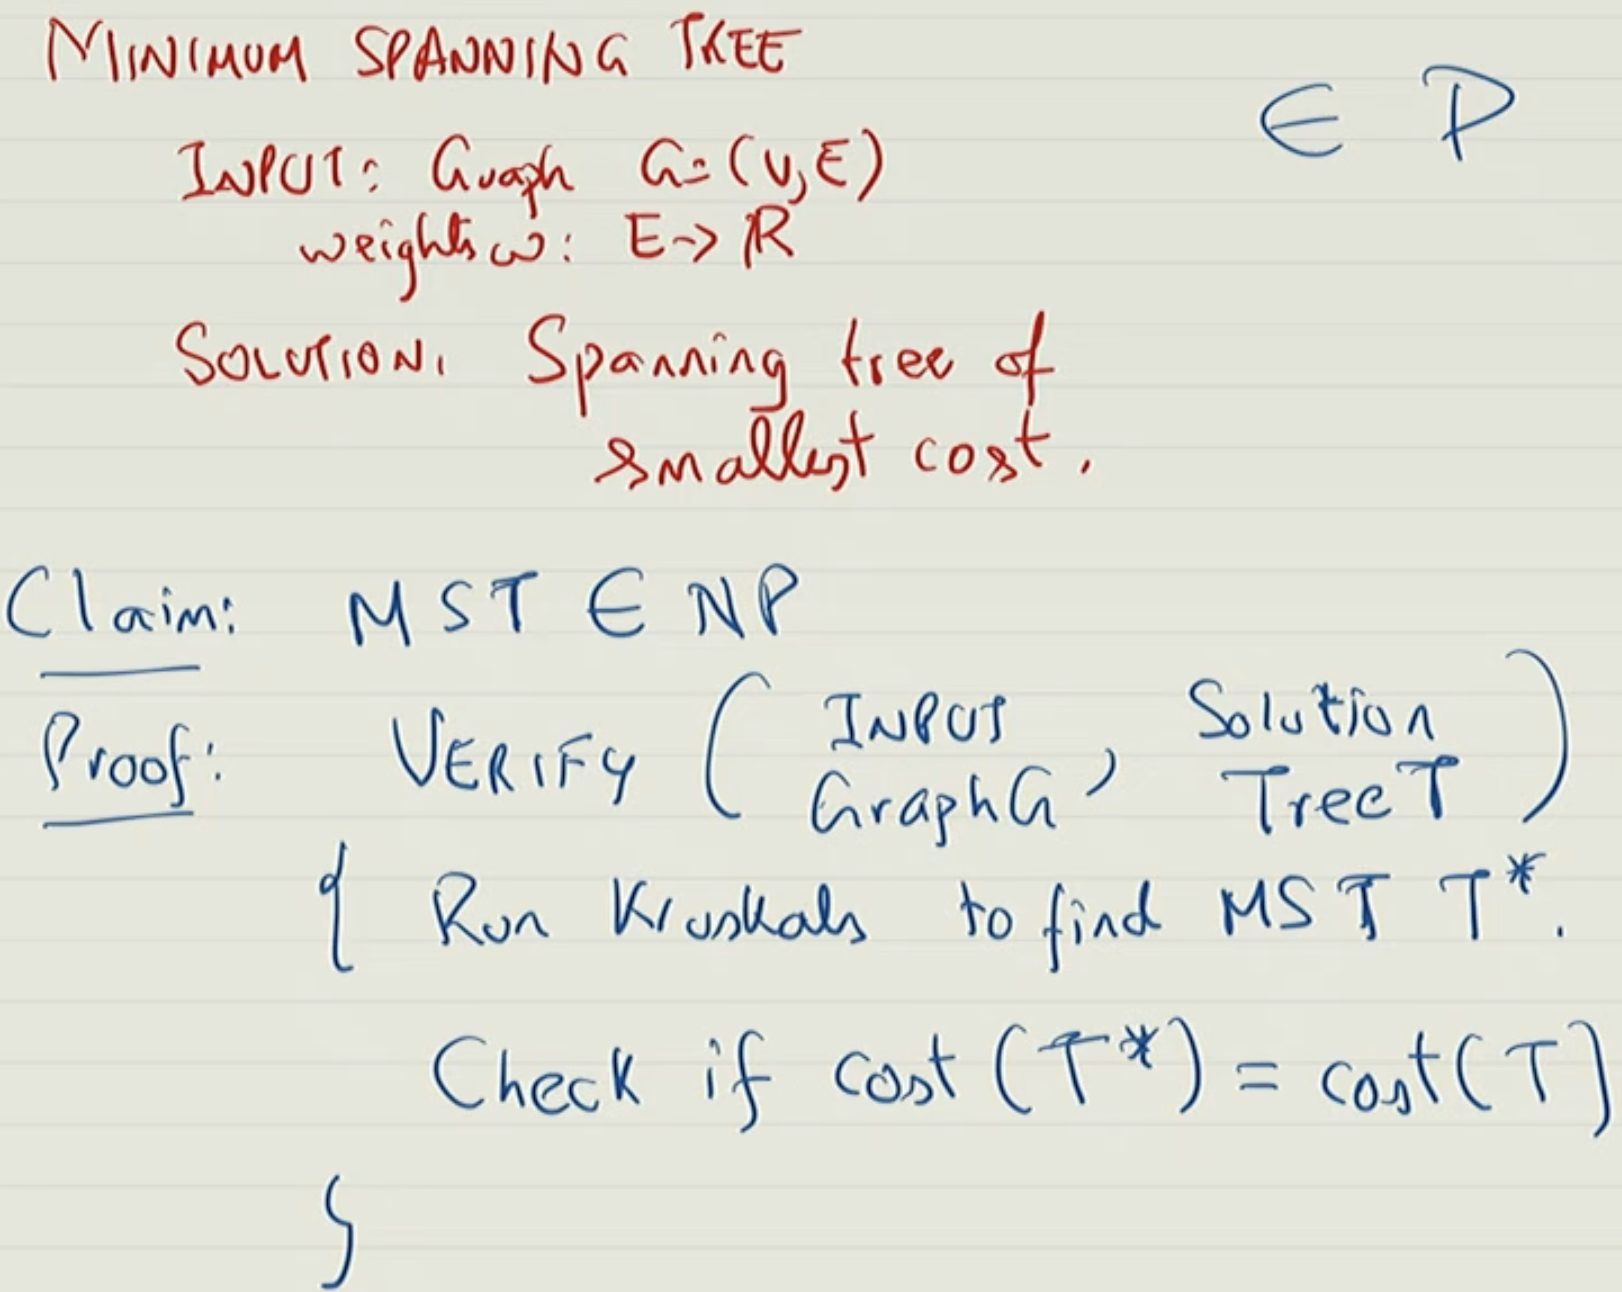 MINIMUM SPANNING TREE
∈ P
INPUT: Graph G=(V,E)
weights w: E→ℝ
SOLUTION: Spanning tree of
smallest cost.
Claim: MST ∈ NP
Proof: VERIFY ( INPUT GraphG , Solution Tree T )
{ Run Kruskals to find MST T*.
Check if cost (T*) = cost(T)
}